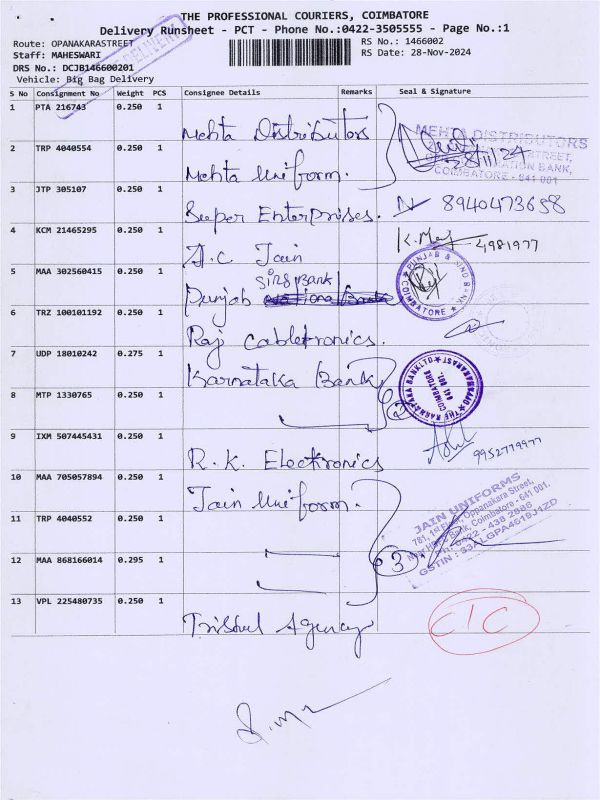 THE PROFESSIONAL COURIERS, COIMBATORE
Delivery Runsheet - PCT - Phone No.:0422-3505555 - Page No.:1
Route: OPANAKARASTREET
RS No.: 1466002
Staff: MAHESWARI
RS Date: 28-Nov-2024
DRS No.: DCJB146600201
Vehicle: Big Bag Delivery
DELIVERY
S No Consignment No Weight PCS Consignee Details Remarks Seal & Signature
1 PTA 216743 0.250 1 Mehta Distributors
MEHTA DISTRIBUTORS
STREET,
BANK,
COIMBATORE - 641 001
28/11/24
2 TRP 4040554 0.250 1 Mehta Uniform.
3 JTP 305107 0.250 1 Super Enterprises. 8940473658
4 KCM 21465295 0.250 1 A.C Jain 4981977
5 MAA 302560415 0.250 1 Punjab Sind Bank
PUNJAB & SIND BANK
COIMBATORE
6 TRZ 100101192 0.250 1 Raj Cabletronics.
7 UDP 18010242 0.275 1 Karnataka Bank
THE KARNATAKA BANK LTD
COIMBATORE
641 001.
8 MTP 1330765 0.250 1 2
9 IXM 507445431 0.250 1 R.K. Electronics 9952779977
10 MAA 705057894 0.250 1 Jain Uniform.
JAIN UNIFORMS
761, 1st Floor, Oppanakara Street,
Bank, Coimbatore - 641 001.
0422 - 438 2686
GSTIN : 33ALGPA4619J1ZD
11 TRP 4040552 0.250 1
12 MAA 868166014 0.295 1 3
13 VPL 225480735 0.250 1 Trishul Agency C/C